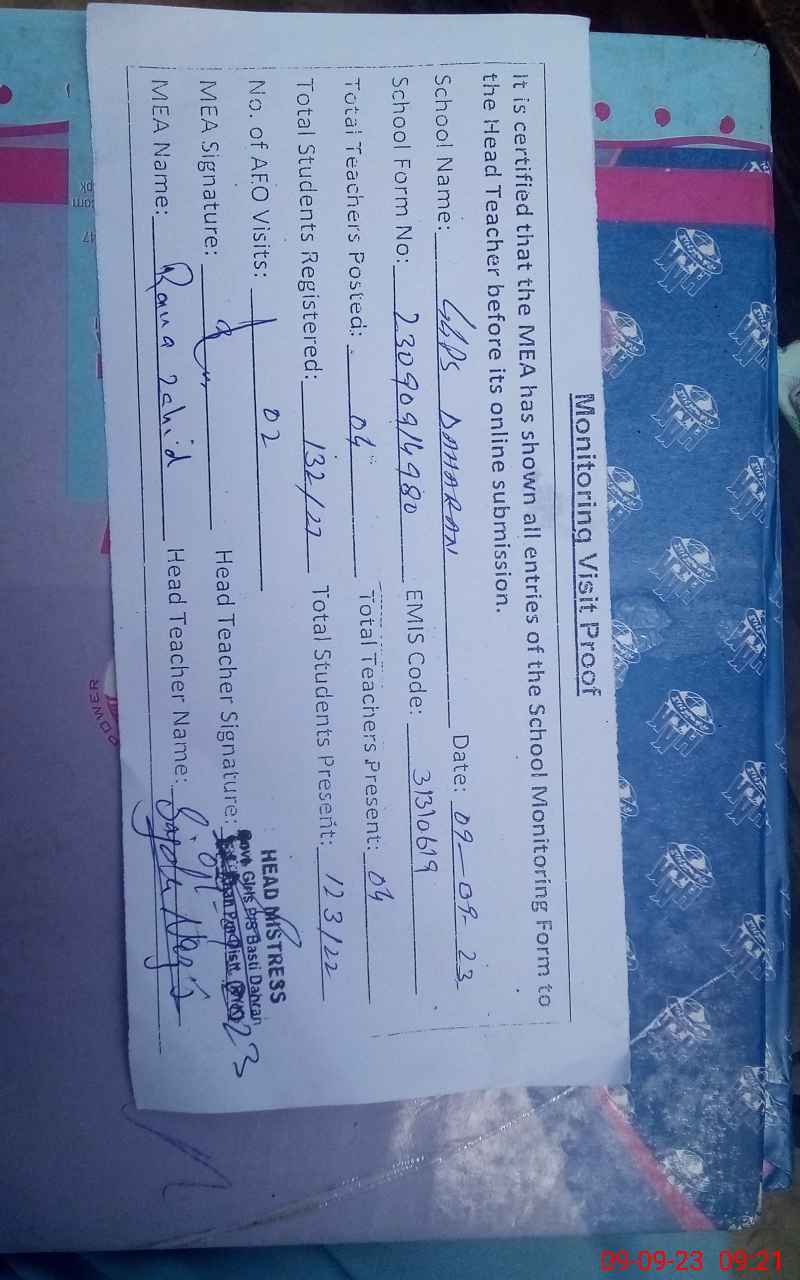 Monitoring Visit Proof
It is certified that the MEA has shown all entries of the School Monitoring Form to
the Head Teacher before its online submission.
School Name: GGPS DAHARAN Date: 09-09-23
School Form No: 23090914980 EMIS Code: 31310619
Total Teachers Posted: 04 Total Teachers Present: 04
Total Students Registered: 132/22 Total Students Present: 123/22
No. of AEO Visits: 02
MEA Signature: Head Teacher Signature:
HEAD MISTRESS
Govt. Girls P/S Basti Dahran
MEA Name: Rana Zahid Head Teacher Name:
POWER
09-09-23 09:21